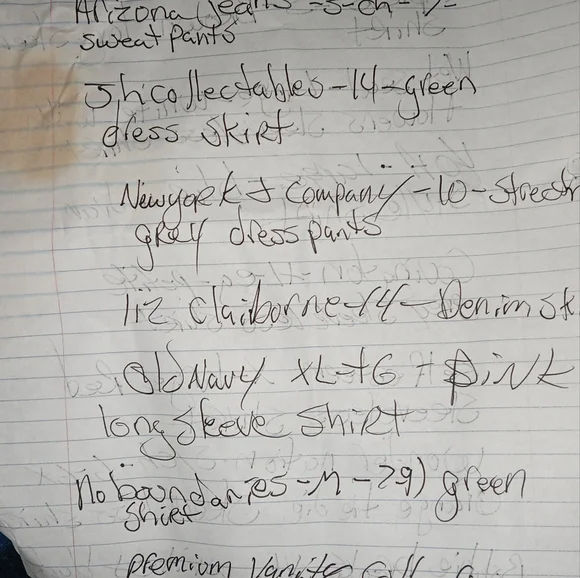 Arizona Jeans -S-ch-
sweat pants
Jhcollectables-14-green
dress skirt
Newyork & company-10-
grey dress pants
liz claiborne-14-Denim sk
Old Navy XL-TG - pink
long sleeve shirt
No boundaries-M-29) green
shirt
premium Vanity